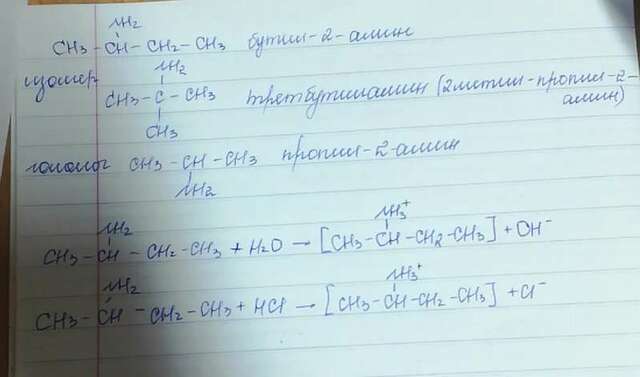 NH2
CH3 – CH – CH2 – CH3 бутил-2-амин
изомер NH2
CH3 – C – CH3 третбутиламин (2метил-пропил-2-
CH3 амин)
гомолог CH3 – CH – CH3 пропил-2-амин
NH2
NH2 NH3+
CH3 – CH – CH2 – CH3 + H2O → [CH3 – CH – CH2 – CH3] + OH-
NH2 NH3+
CH3 – CH – CH2 – CH3 + HCl → [CH3 – CH – CH2 – CH3] + Cl-